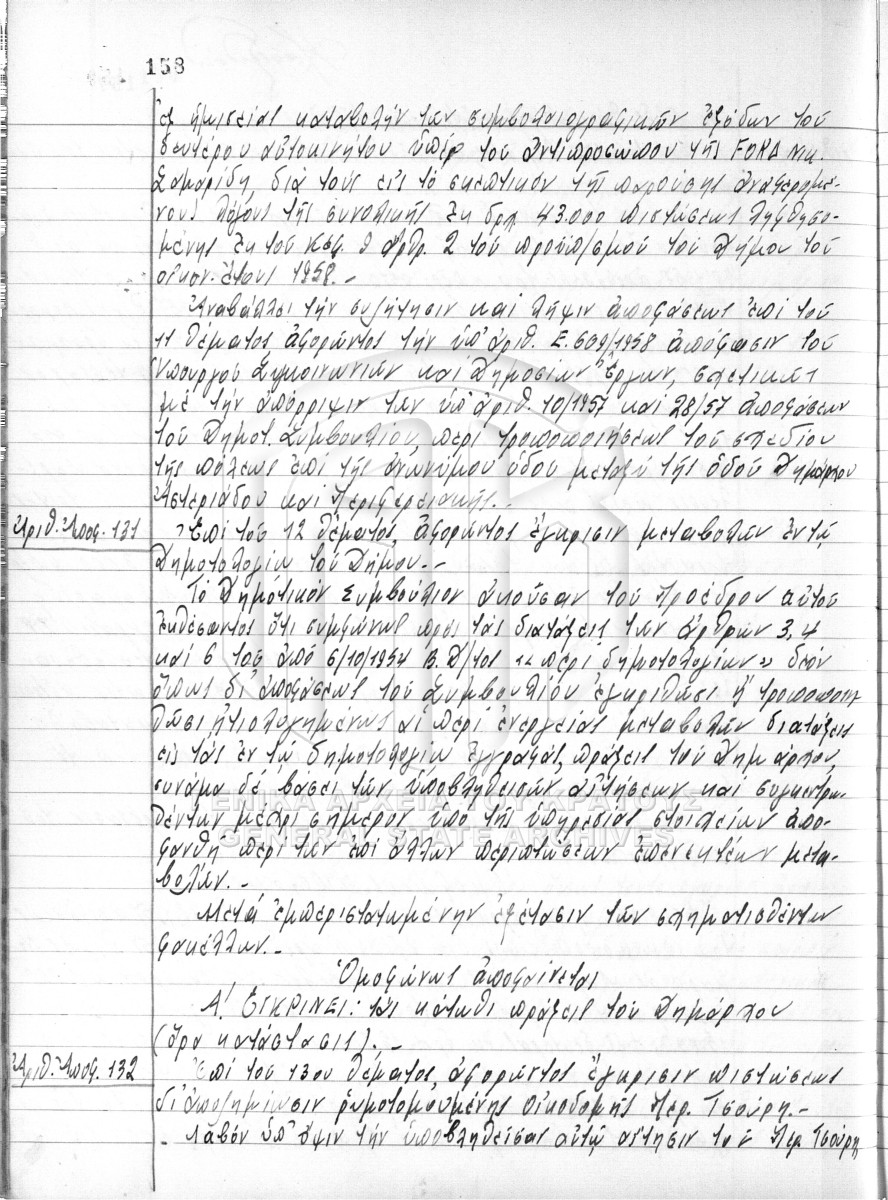 158
ἐξ ἡμισείας καταβολὴν τῶν συμβολαιογραφικῶν ἐξόδων τοῦ
δευτέρου αὐτοκινήτου ὑπὲρ τοῦ ἀντιπροσώπου τῆς FORD Νικ.
Σαμαρίδη, διὰ τοὺς εἰς τὸ σκεπτικὸν τῆς παρούσης ἀναφερομέ-
νους λόγους τῆς συνολικῆς ἐκ δρχ. 43.000 πιστώσεως ληφθησο-
μένης ἐκ τοῦ Κεφ. 9 ἄρθρ. 2 τοῦ προϋπ/σμοῦ τοῦ Δήμου τοῦ
οἰκον. ἔτους 1958.-
Ἀναβάλλει τὴν συζήτησιν καὶ λῆψιν ἀποφάσεως ἐπὶ τοῦ
11 θέματος ἀφορῶντος τὴν ὑπ' ἀριθ. Ε.609/1958 ἀπόφασιν τοῦ
Ὑπουργοῦ Συγκοινωνιῶν καὶ Δημοσίων Ἔργων, σχετικῶς
μὲ τὴν ἀπόρριψιν τῶν ὑπ' ἀριθ. 10/1957 καὶ 28/57 ἀποφάσεων
τοῦ Δημοτ. Συμβουλίου, περὶ τροποποιήσεως τοῦ σχεδίου
τῆς πόλεως ἐπὶ τῆς ἀνωνύμου ὁδοῦ μεταξὺ τῆς ὁδοῦ Δημάρχου
Ἀστεριάδου καὶ Περιφερειακῆς.-
Ἀριθ. Ἀποφ. 131
Ἐπὶ τοῦ 12 θέματος, ἀφορῶντος ἔγκρισιν μεταβολῶν ἐν τῷ
Δημοτολογίῳ τοῦ Δήμου.-
Τὸ Δημοτικὸν Συμβούλιον ἀκοῦσαν τοῦ Προέδρου αὐτοῦ
ἐκθέσαντος ὅτι συμφώνως πρὸς τὰς διατάξεις τῶν ἄρθρων 3, 4
καὶ 6 τοῦ ἀπὸ 6/10/1954 Β. Δ/τος "περὶ δημοτολογίων" δέον
ὅπως δι' ἀποφάσεως τοῦ Συμβουλίου ἐγκριθῶσι ἢ τροποποιη-
θῶσι ἠτιολογημένως αἱ περὶ ἐνεργείας μεταβολῶν διατάξεις
εἰς τὰς ἐν τῷ δημοτολογίῳ ἐγγραφὰς πράξεις τοῦ Δημάρχου,
συνάμα δὲ βάσει τῶν ὑποβληθεισῶν αἰτήσεων καὶ συγκεντρω-
θέντων μέχρι σήμερον ὑπὸ τῆς ὑπηρεσίας στοιχείων ἀπο-
φανθῇ περὶ τῶν ἐπὶ ἄλλων περιπτώσεων ἐπενεκτέων μετα-
βολῶν.-
Μετὰ ἐμπεριστατωμένην ἐξέτασιν τῶν σχηματισθέντων
φακέλλων.-
Ὁμοφώνως ἀποφαίνεται
Α! ΕΓΚΡΙΝΕΙ: τὰς κάτωθι πράξεις τοῦ Δημάρχου
(ὅρα κατάστασις).-
Ἀριθ. Ἀποφ. 132
Ἐπὶ τοῦ 13ου θέματος ἀφορῶντος ἔγκρισιν πιστώσεως
δι' ἀποζημίωσιν ρυμοτομουμένης οἰκοδομῆς Περ. Τσούρη.-
Λαβὸν ὑπ' ὄψιν τὴν ὑποβληθεῖσαν αὐτῷ αἴτησιν τοῦ Περ. Τσούρη
ΓΕΝΙΚΑ ΑΡΧΕΙΑ ΤΟΥ ΚΡΑΤΟΥΣ
GENERAL STATE ARCHIVES